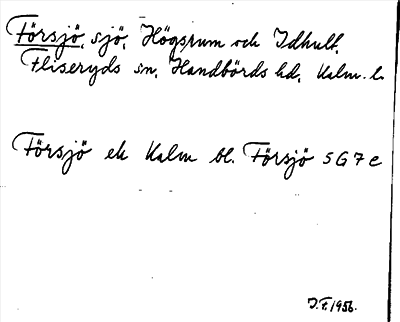 Försjö, sjö, Högsrum och Idhult,
Fliseryds sn, Handbörds hd, Kalm. l.
Försjö ek Kalm bl. Försjö 5G7e
J.F. 1956.